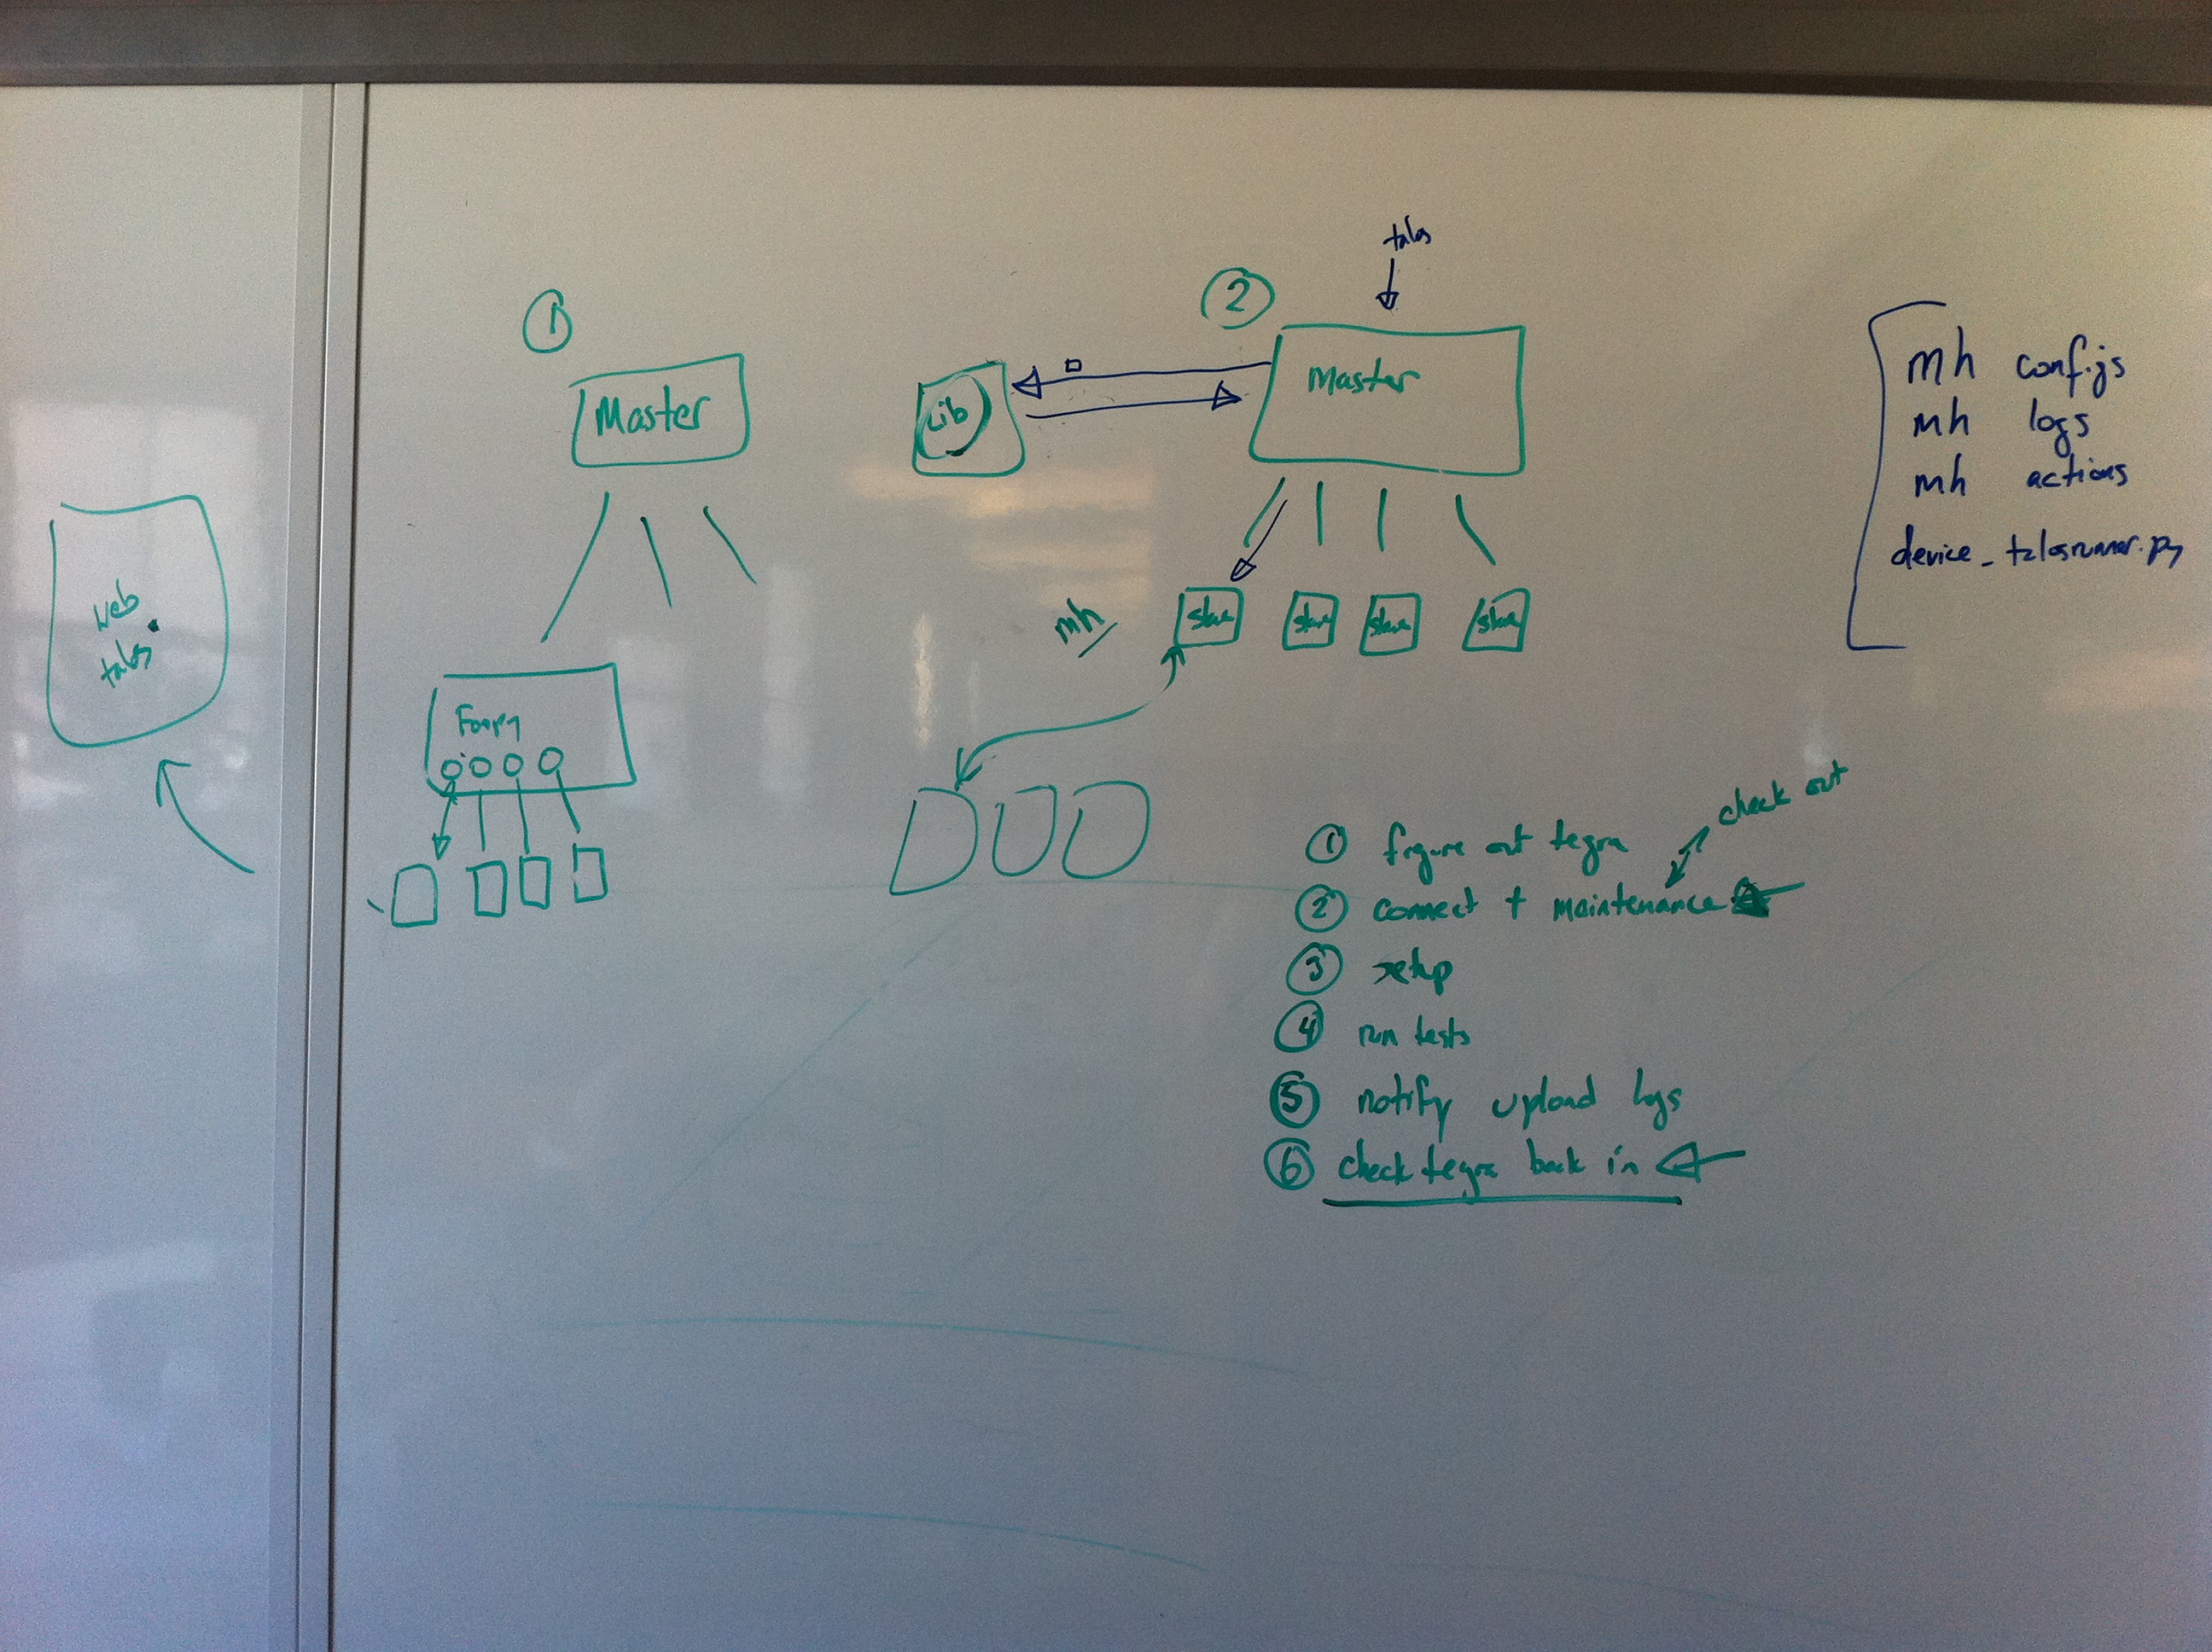 web
talos
①
Master
Foopy
②
talos
Master
Lib
slave
slave
slave
slave
mh
mh configs
mh logs
mh actions
device_talosrunner.py
check out
① figure out tegra
② connect + maintenance
③ setup
④ run tests
⑤ notify upload logs
⑥ check tegra back in